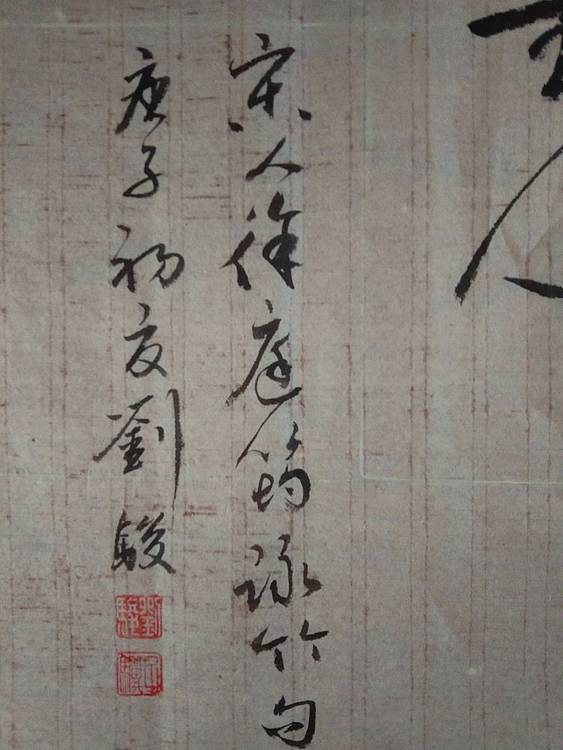 宋人徐庭筠詠竹句
庚子初夏劉駿